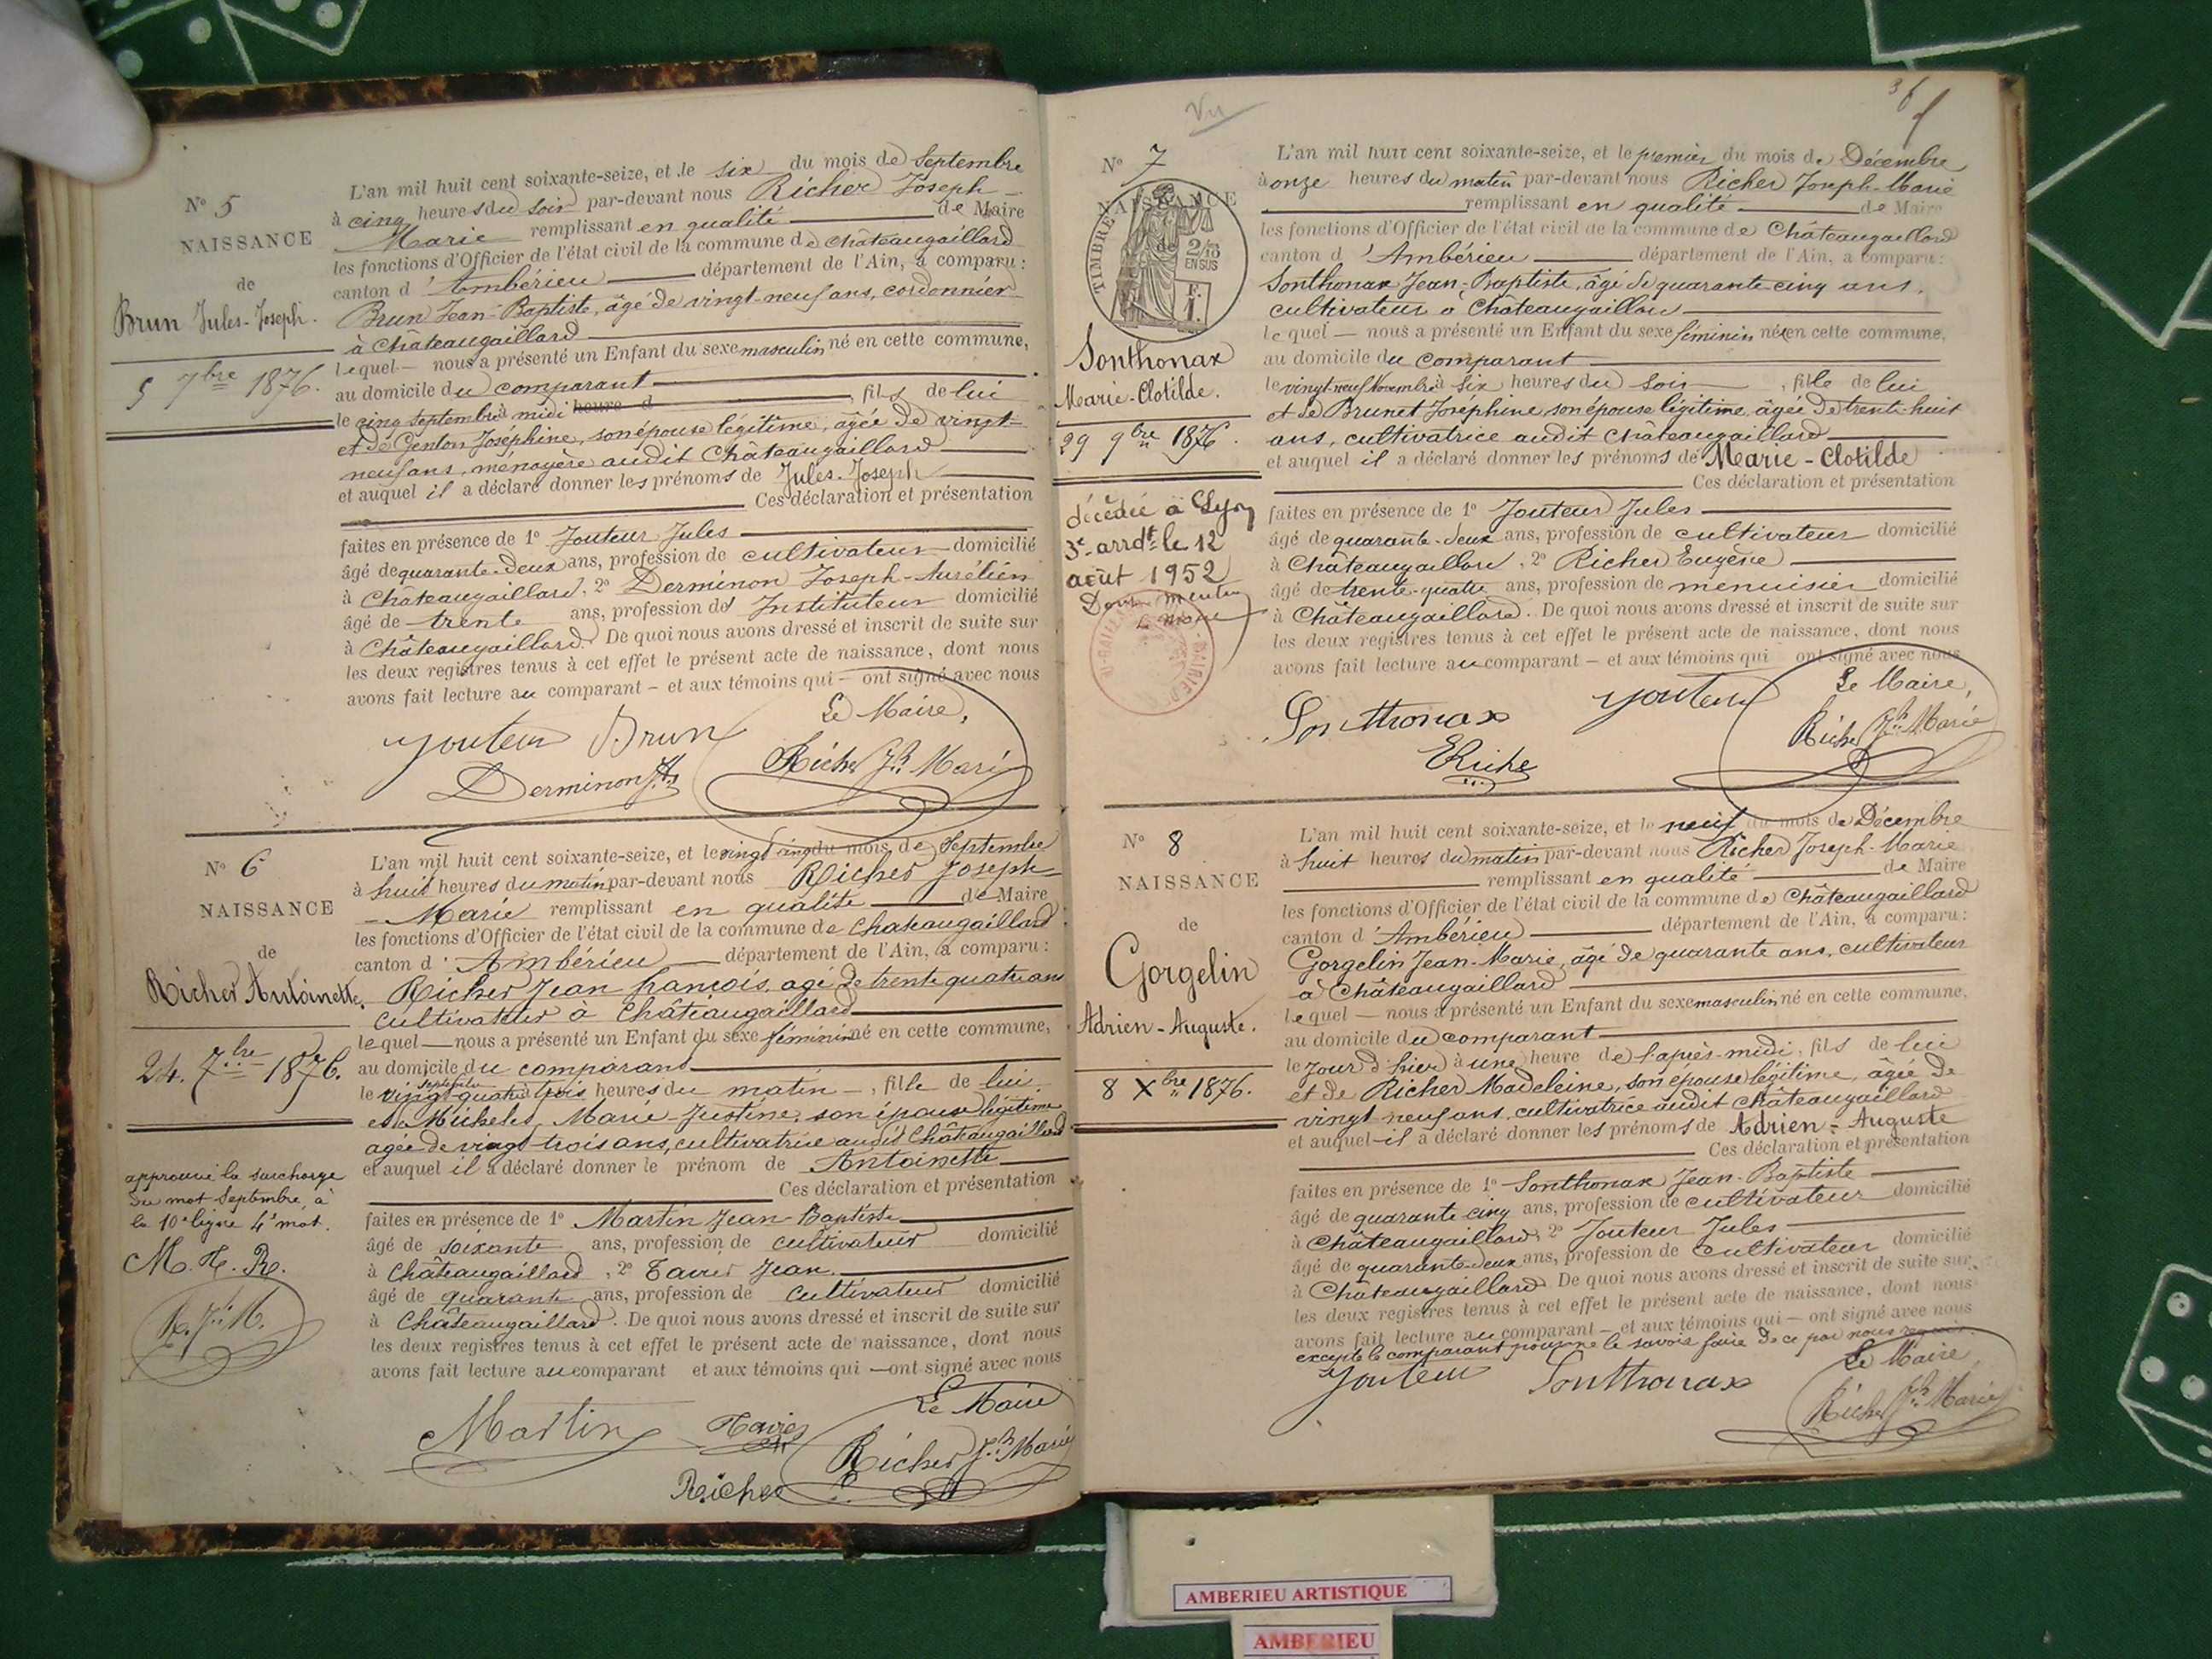 N° 5
NAISSANCE
de
Brun Jules-Joseph.
5 7bre 1876.
L'an mil huit cent soixante-seize, et le six du mois de Septembre
à cinq heures du soir par-devant nous Richer Joseph-
Marie remplissant en qualité de Maire
les fonctions d'Officier de l'état civil de la commune de Châteaugaillard
canton d'Ambérieu département de l'Ain, a comparu :
Brun Jean-Baptiste, âgé de vingt-neuf ans, cordonnier
à Châteaugaillard
lequel nous a présenté un Enfant du sexe masculin né en cette commune,
au domicile du comparant
le cinq septembre à midi heure d , fils de lui
et de Genton Joséphine, son épouse légitime, âgée de vingt-
neuf ans, ménagère audit Châteaugaillard
et auquel il a déclaré donner les prénoms de Jules-Joseph
Ces déclaration et présentation
faites en présence de 1° Jouteur Jules
âgé de quarante-deux ans, profession de cultivateur domicilié
à Châteaugaillard, 2° Derminon Joseph-Aurélien
âgé de trente ans, profession d' Instituteur domicilié
à Châteaugaillard. De quoi nous avons dressé et inscrit de suite sur
les deux registres tenus à cet effet le présent acte de naissance, dont nous
avons fait lecture au comparant – et aux témoins qui – ont signé avec nous
Le Maire,
Jouteur Brun
Derminon Richer Jh Marie
N° 6
NAISSANCE
de
Richer Antoinette.
24. 7bre 1876.
approuvé la surcharge
du mot Septembre, à
la 10e ligne 4e mot.
M. T. R.
R. Jh M.
L'an mil huit cent soixante-seize, et le vingt cinq du mois de Septembre
à huit heures du matin par-devant nous Richer Joseph-
Marie remplissant en qualité de Maire
les fonctions d'Officier de l'état civil de la commune de Chateaugaillard
canton d'Ambérieu département de l'Ain, a comparu :
Richer Jean françois, agé de trente quatre ans
cultivateur à Châteaugaillard
lequel nous a présenté un Enfant du sexe féminin né en cette commune,
au domicile du comparant
septembre
le vingt-quatre à trois heures du matin , fille de lui
et de Michelet Marie Justine, son épouse légitime
agée de vingt-trois ans, cultivatrice audit Châteaugaillard
et auquel il a déclaré donner le prénom de Antoinette
Ces déclaration et présentation
faites en présence de 1° Martin Jean-Baptiste
âgé de soixante ans, profession de cultivateur domicilié
à Châteaugaillard, 2° Tavier Jean.
âgé de quarante ans, profession de cultivateur domicilié
à Châteaugaillard. De quoi nous avons dressé et inscrit de suite sur
les deux registres tenus à cet effet le présent acte de naissance, dont nous
avons fait lecture au comparant et aux témoins qui — ont signé avec nous
Le Maire
Martin Tavier Richer Jh Marie
Richer
Vu
36
N° 7
NAISSANCE
TIMBRE
2/10
EN SUS
F.
1.
Sonthonax
Marie-Clotilde.
29 9bre 1876.
décédée à Lyon
3e arrdt le 12
août 1952
L'an mil huit cent soixante-seize, et le premier du mois de Décembre
à onze heures du matin par-devant nous Richer Joseph-Marie
remplissant en qualité de Maire
les fonctions d'Officier de l'état civil de la commune de Châteaugaillard
canton d'Ambérieu département de l'Ain, a comparu :
Sonthonax Jean-Baptiste, âgé de quarante-cinq ans,
cultivateur à Châteaugaillard
lequel — nous a présenté un Enfant du sexe féminin née en cette commune,
au domicile du comparant
le vingt-neuf Novembre à six heures du soir , fille de lui
et de Brunet Joséphine son épouse légitime, âgée de trente-huit
ans, cultivatrice audit Châteaugaillard
et auquel il a déclaré donner les prénoms de Marie-Clotilde
Ces déclaration et présentation
faites en présence de 1° Jouteur Jules
âgé de quarante-deux ans, profession de cultivateur domicilié
à Châteaugaillard, 2° Richer Eugène
âgé de trente-quatre ans, profession de menuisier domicilié
à Châteaugaillard. De quoi nous avons dressé et inscrit de suite sur
les deux registres tenus à cet effet le présent acte de naissance, dont nous
avons fait lecture au comparant – et aux témoins qui ont signé avec nous
Le Maire,
Sonthonax Jouteur Richer Jh Marie
E Riche
N° 8
NAISSANCE
de
Gorgelin
Adrien-Auguste.
8 Xbre 1876.
L'an mil huit cent soixante-seize, et le neuf du mois de Décembre
à huit heures du matin par-devant nous Richer Joseph-Marie
remplissant en qualité de Maire
les fonctions d'Officier de l'état civil de la commune de Châteaugaillard
canton d'Ambérieu département de l'Ain, a comparu :
Gorgelin Jean-Marie, âgé de quarante ans, cultivateur
à Châteaugaillard
lequel — nous a présenté un Enfant du sexe masculin né en cette commune,
au domicile du comparant
le jour d'hier à une heure de l'après-midi, fils de lui
et de Richer Madeleine, son épouse légitime, âgée de
vingt-neuf ans, cultivatrice audit Châteaugaillard
et auquel il a déclaré donner les prénoms de Adrien-Auguste
Ces déclaration et présentation
faites en présence de 1° Sonthonax Jean-Baptiste
âgé de quarante cinq ans, profession de cultivateur domicilié
à Châteaugaillard, 2° Jouteur Jules
âgé de quarante-deux ans, profession de cultivateur domicilié
à Châteaugaillard. De quoi nous avons dressé et inscrit de suite sur
les deux registres tenus à cet effet le présent acte de naissance, dont nous
avons fait lecture au comparant – et aux témoins qui – ont signé avec nous
excepté le comparant pour ne le savoir faire de ce par nous requis.
Le Maire
Jouteur Sonthonax Richer Jh Marie
AMBERIEU ARTISTIQUE
AMBERIEU